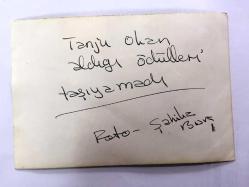 Tanju Okan
aldığı ödülleri
taşıyamadı
Foto - Şahika